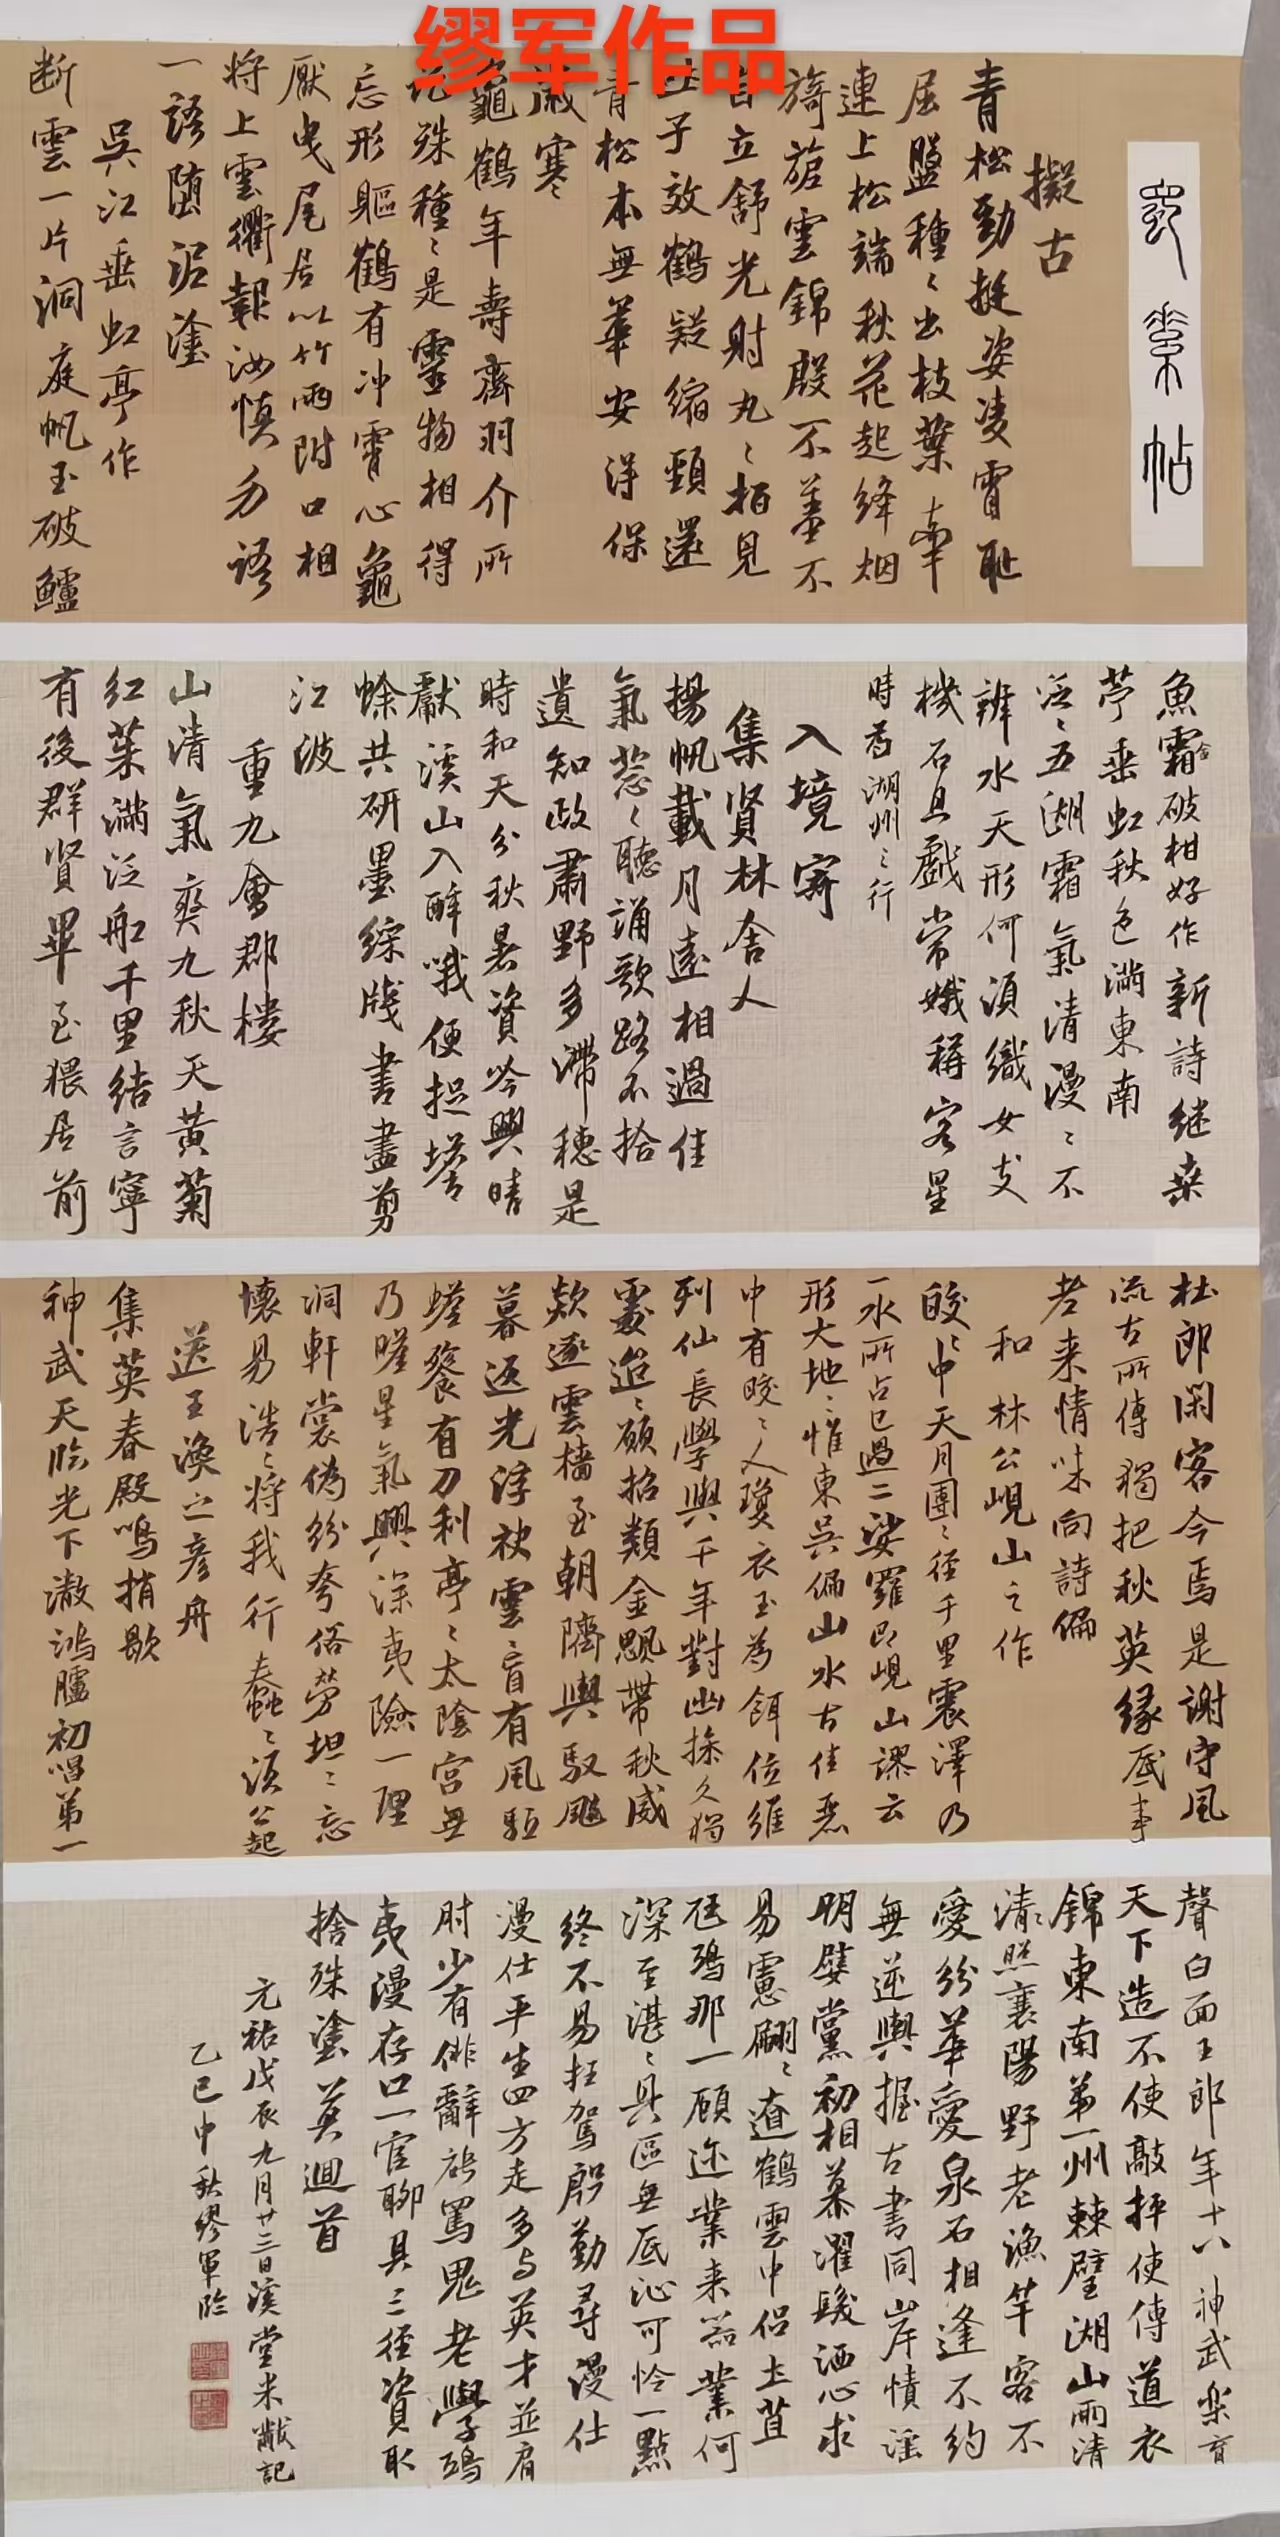 缪军作品
蜀素帖
擬古
青松勁挺姿凌霄耻
屈盤種〻出枝葉牽
連上松端秋花起絳烟
旖旎雲錦殷不羞不
自立舒光射丸〻柏見
吐子效鶴疑縮頸還
青松本無華安得保
歲寒〻
龜鶴年壽齊羽介所
託殊種〻是靈物相得
忘形軀鶴有冲霄心龜
厭曳尾居以竹兩附口相
将上雲衢報汝慎勿語
一語墮泥塗
吳江垂虹亭作
断雲一片洞庭帆玉破鱸
魚霜金破柑好作新詩継桑
苧垂虹秋色滿東南
泛〻五湖霜氣清漫〻不
辨水天形何須織女支
機石且戲常娥稱客星
時爲湖州之行
入境寄
集賢林舍人
揚帆載月遠相過佳
氣葱〻聽誦歌路不拾
遺知政肅野多滯穗是
時和天分秋暑資吟興晴
獻溪山入醉哦便捉蟾
蜍共研墨綵牋書盡剪
江波
重九會郡樓
山清氣爽九秋天黄菊
紅茱滿泛船千里結言寧
有後群賢畢至猥居前
杜郎閑客今焉是謝守風
流古所傳獨把秋英緣底事
老来情味向詩偏
和林公峴山之作
皎〻中天月團〻徑千里震澤乃
一水所占已過二娑羅即峴山謬云
形大地〻惟東吳偏山水古佳麗
中有皎〻人瓊衣玉爲餌位維
列仙長學與千年對幽操久獨
處迢〻願招類金颸帶秋威
欻逐雲檣至朝隮輿馭飈
暮返光浮袂雲盲有風驅
蟾餮有刀利亭〻太陰宮無
乃瞠星氣興深夷險一理
洞軒裳偽紛夸俗勞坦〻忘
懷易浩〻將我行蠢〻須公起
送王渙之彦舟
集英春殿鳴捎歇
神武天臨光下澈鴻臚初唱第一
聲白面王郎年十八神武樂育
天下造不使敲抨使傳道衣
錦東南第一州棘璧湖山兩清
清照襄陽野老漁竿客不
愛紛華愛泉石相逢不約
無逆輿握古書同岸幘淫
朋嬖黨初相慕濯髮洒心求
易慮翩〻遼鶴雲中侶土苴
尫鴟那一顧迩業来器業何
深至湛〻具區無底沁可怜一點
終不易枉駕殷勤尋漫仕
漫仕平生四方走多与英才並肩
肘少有俳辭能罵鬼老學鴟
夷漫存口一官聊具三徑資取
捨殊塗莫迴首
元祐戊辰九月廿三日溪堂米黻記
乙巳中秋繆軍臨